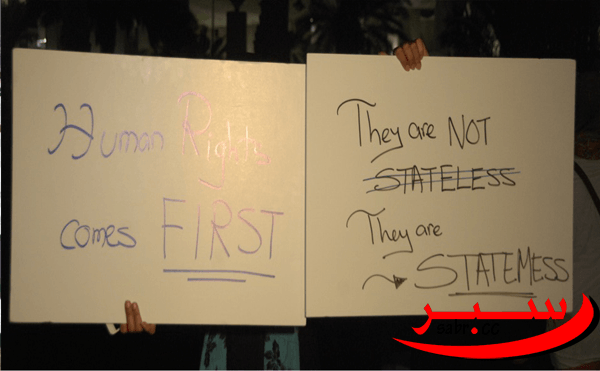 Human Rights
comes FIRST
They are NOT
STATELESS
They are
STATEMESS
سبر